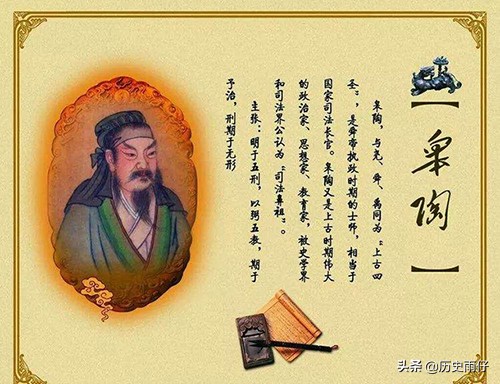 【皋陶】
皋陶，与尧、舜、禹同为“上古四
圣”，是舜帝执政时期的士师，相当于
国家司法长官。皋陶又是上古时期伟大
的政治家、思想家、教育家，被史学界
和司法界公认为“司法鼻祖”。
主张：明于五刑，以弼五教，期于
予治，刑期于无形
头条 @历史雨仔